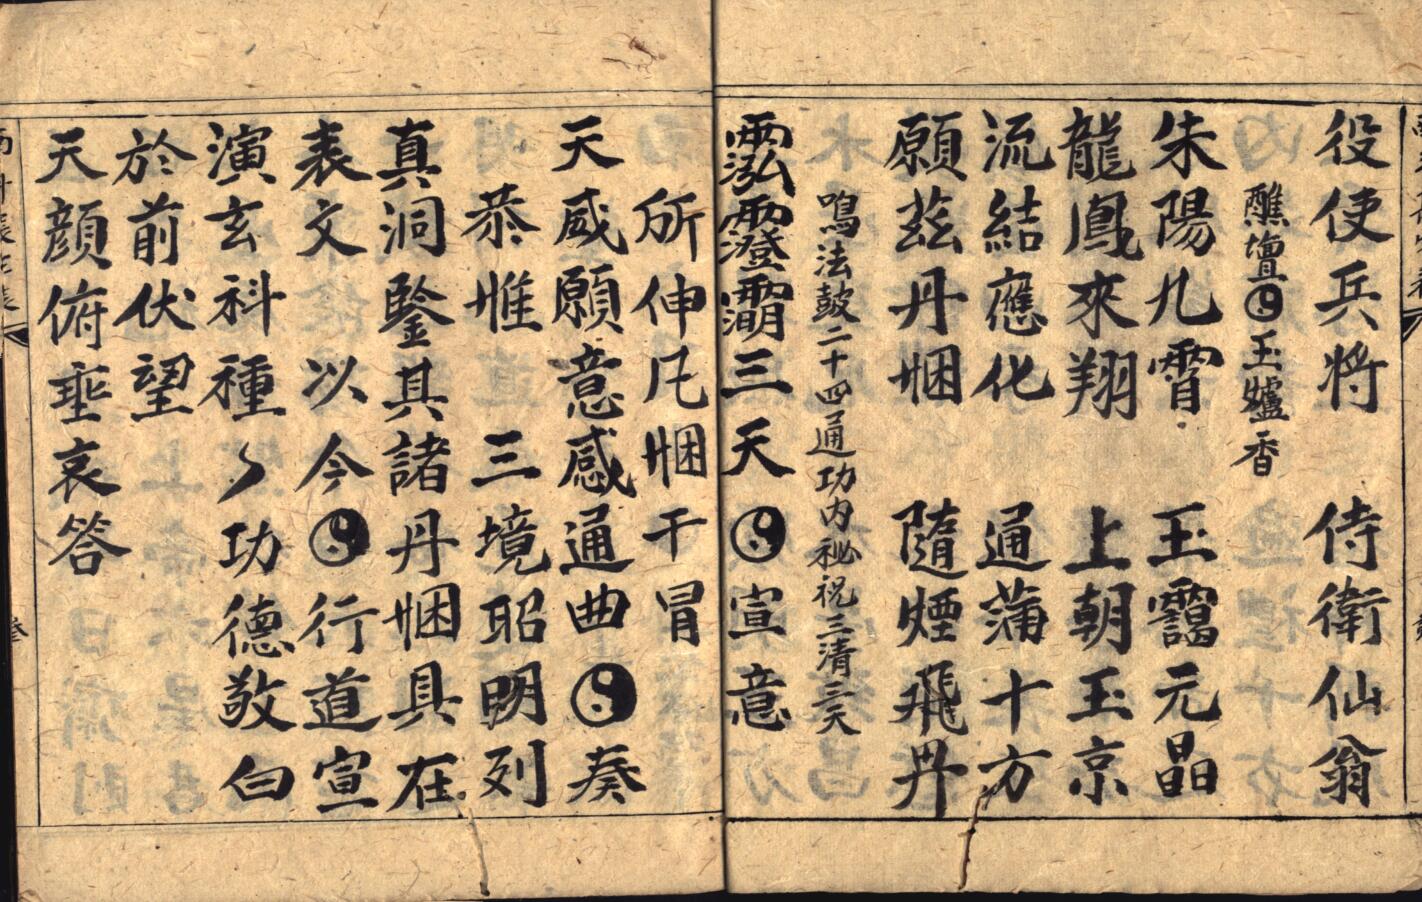 役使兵將 侍衛仙翁
醮壇☯玉爐香
朱陽九霄 玉靄元晶
龍鳳來翔 上朝玉京
流結應化 通蒲十方
願茲丹悃 隨煙飛丹
鳴法鼓二十四通功內祕祝三清三天
三天☯宣意
所伸凡悃干冒
天威願意感通曲☯奏
恭惟 三境昭明列
真洞鑒其諸丹悃具在
表文 以今☯行道宣
演玄科種〻功德敬白
於前伏望
天顏俯垂哀答